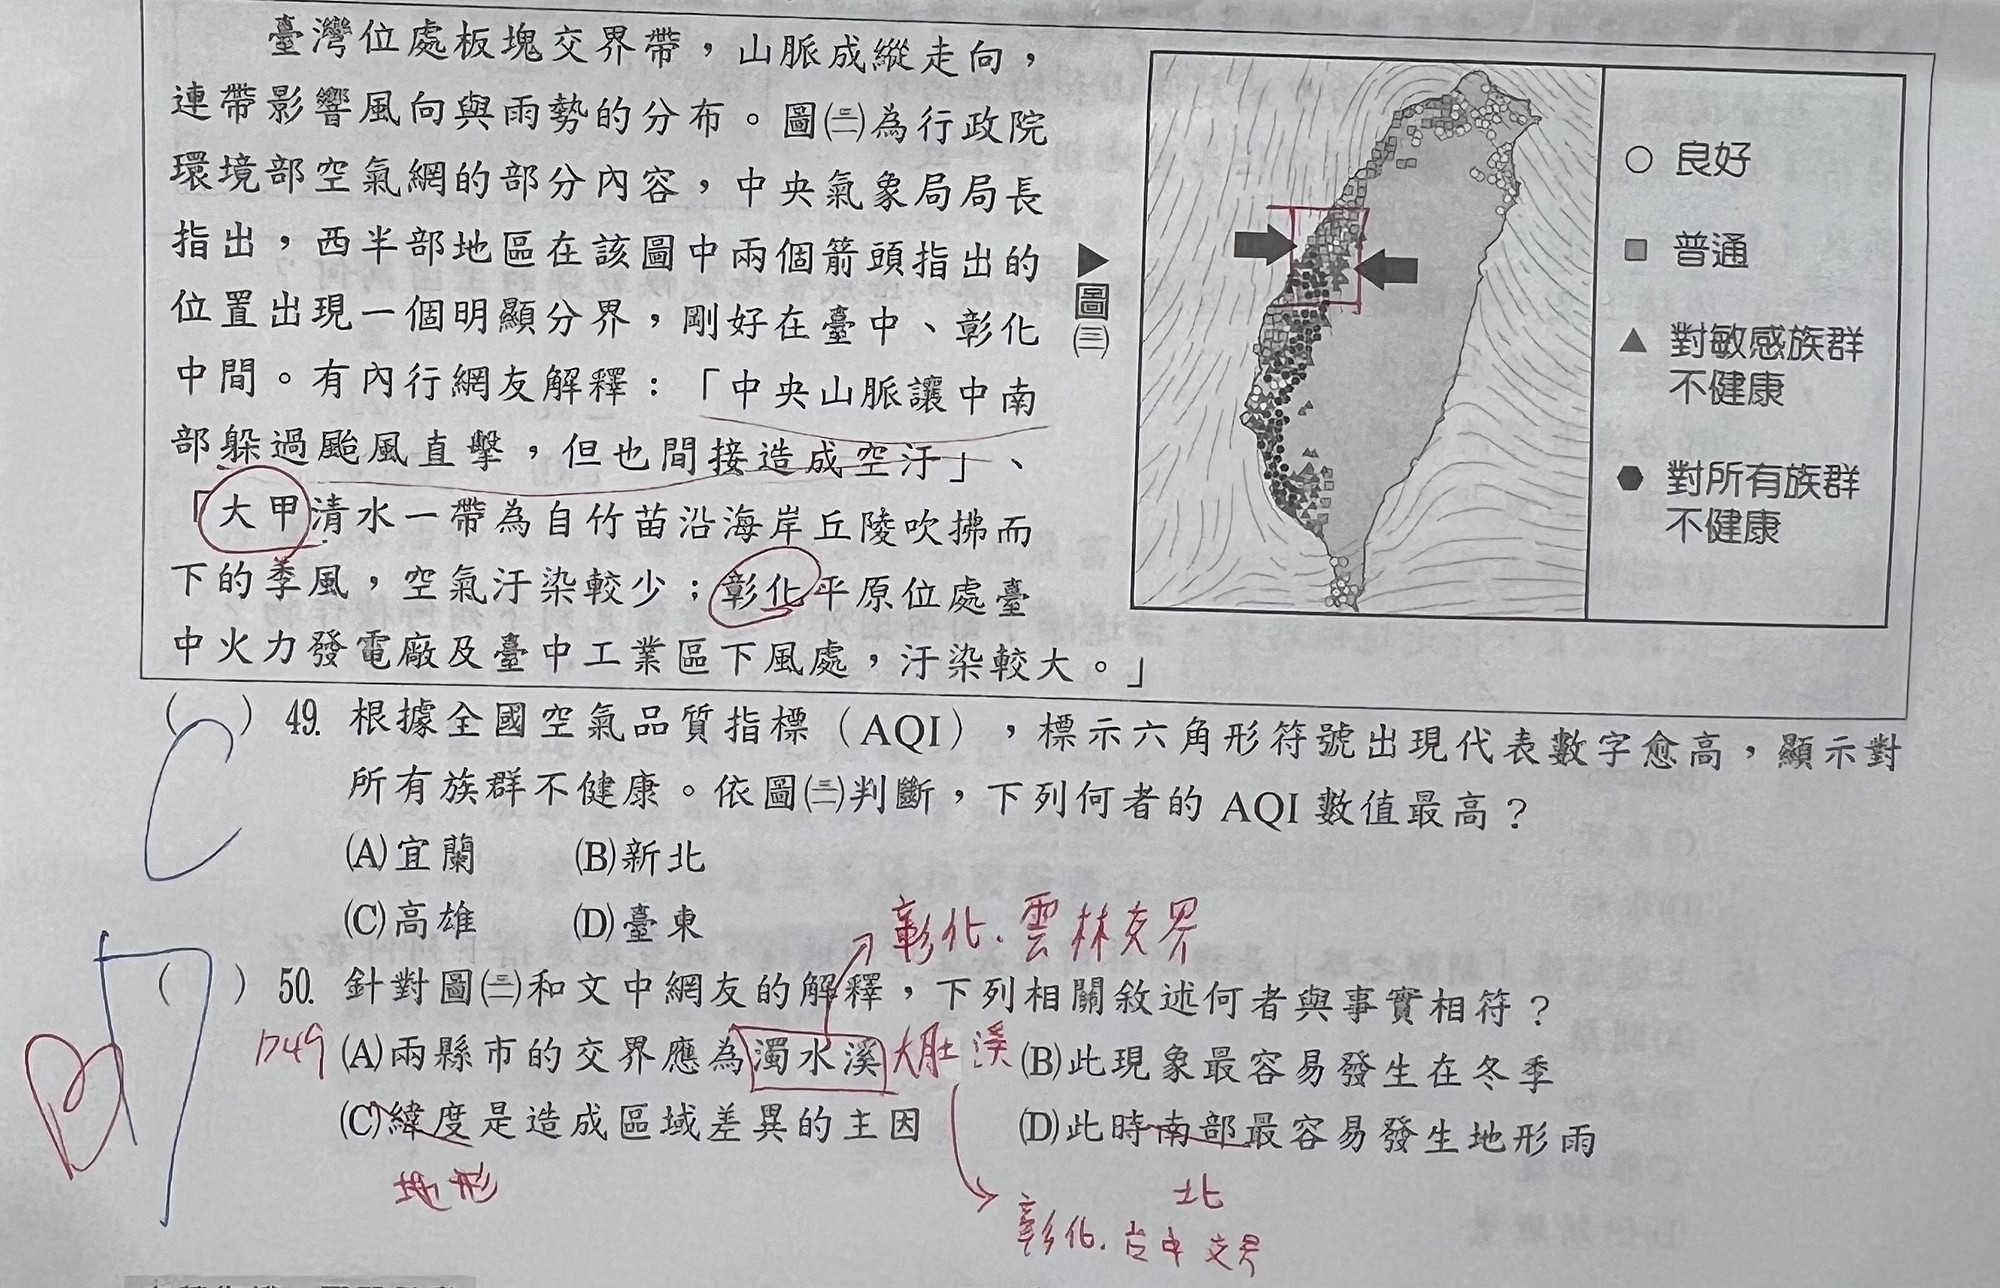 臺灣位處板塊交界帶，山脈成縱走向，
連帶影響風向與雨勢的分布。圖㈢為行政院
環境部空氣網的部分內容，中央氣象局局長
指出，西半部地區在該圖中兩個箭頭指出的
位置出現一個明顯分界，剛好在臺中、彰化
中間。有內行網友解釋：「中央山脈讓中南
部躲過颱風直擊，但也間接造成空汙」、
「大甲清水一帶為自竹苗沿海岸丘陵吹拂而
下的季風，空氣汙染較少；彰化平原位處臺
中火力發電廠及臺中工業區下風處，汙染較大。」
▶圖㈢
○ 良好
■ 普通
▲ 對敏感族群
不健康
⬢ 對所有族群
不健康
（C）49. 根據全國空氣品質指標（AQI），標示六角形符號出現代表數字愈高，顯示對
所有族群不健康。依圖㈢判斷，下列何者的 AQI 數值最高？
(A)宜蘭 (B)新北
(C)高雄 (D)臺東
彰化.雲林交界
（ ）50. 針對圖㈢和文中網友的解釋，下列相關敘述何者與事實相符？
(A)兩縣市的交界應為濁水溪 大肚溪 (B)此現象最容易發生在冬季
(C)緯度是造成區域差異的主因 (D)此時南部最容易發生地形雨
地形
北
彰化.台中交界